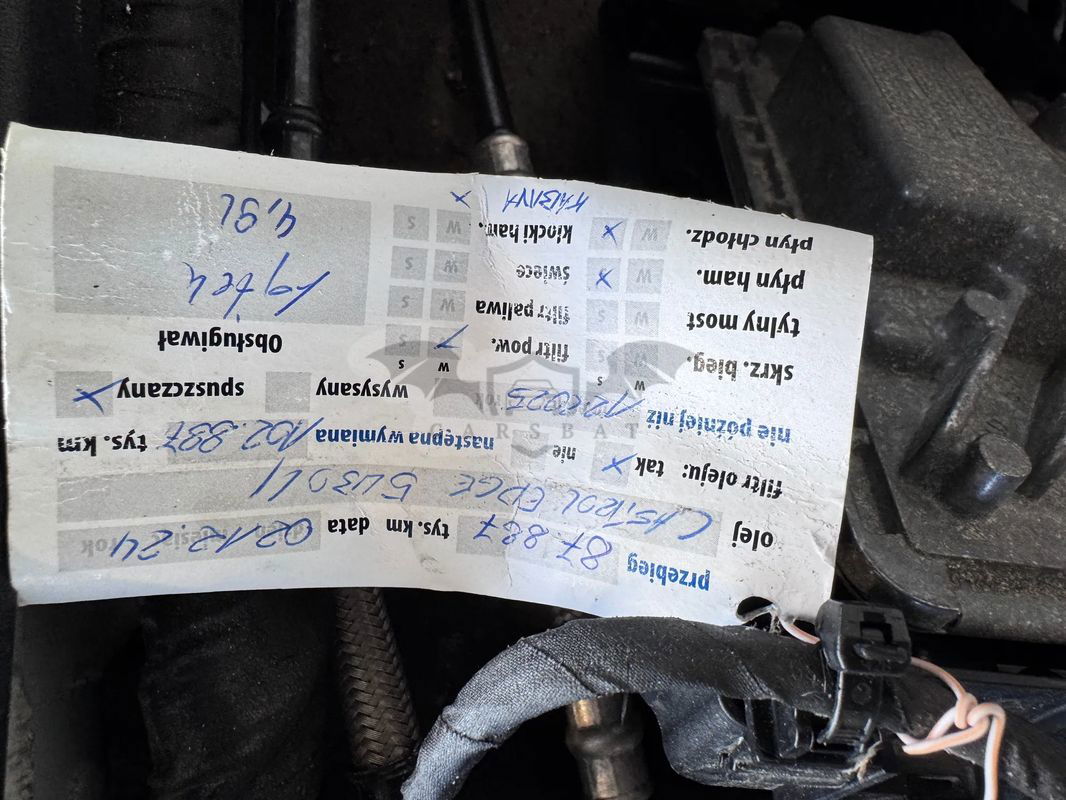 przebieg 87 887 tys. km data 02.12.24 rok
olej CASTROL EDGE 5W30 LL
filtr oleju: tak X nie następna wymiana 102.887 tys. km
nie później niż 12 2025 wysysany spuszczany X
W S W S
skrz. bieg. filtr pow. W S Obsługiwał
tylny most W S filtr paliwa W S
płyn ham. W X świece W S
płyn chłodz. W X klocki ham. W S 4,9L
KABINA X
CARSBAT